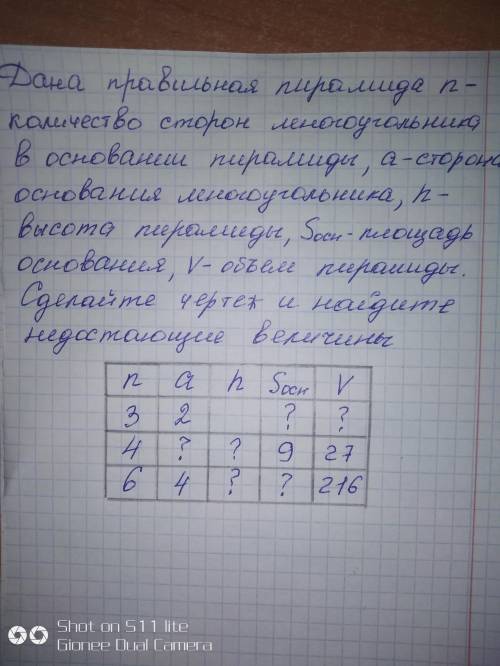 Дана правильная пирамида n-
количество сторон многоугольника
в основании пирамиды, a-сторона
основания многоугольника, h-
высота пирамиды, Sосн-площадь
основания, V-объем пирамиды.
Сделайте чертеж и найдите
недостающие величины
n a h Sосн V
3 2 ? ?
4 ? ? 9 27
6 4 ? ? 216
Shot on S11 lite
Gionee Dual Camera